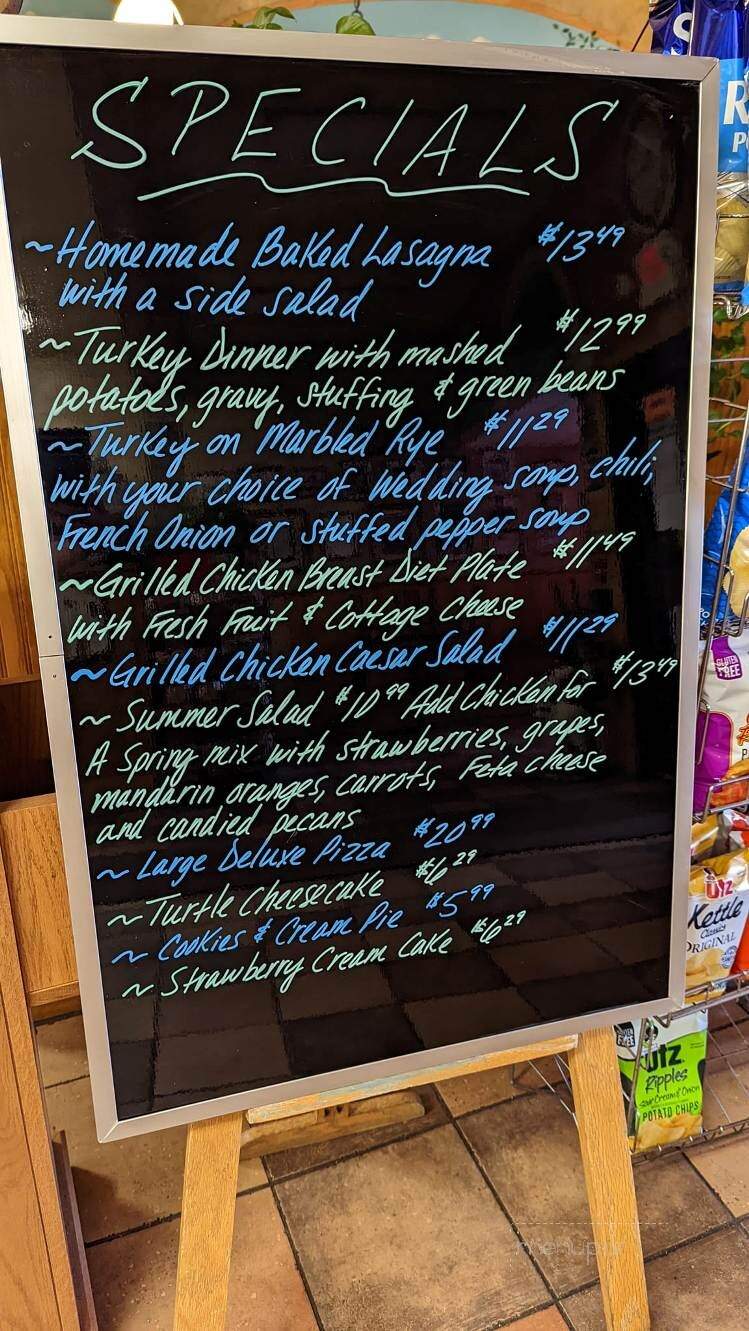 SPECIALS
~Homemade Baked Lasagna $13.49
with a side salad
~Turkey Dinner with mashed $12.99
potatoes, gravy, stuffing & green beans
~Turkey on Marbled Rye $11.29
with your choice of Wedding soup, chili,
French Onion or stuffed pepper soup
~Grilled Chicken Breast Diet Plate $11.49
with Fresh Fruit & Cottage Cheese
~Grilled Chicken Caesar Salad $11.29
~Summer Salad $10.99 Add Chicken for $13.49
A Spring mix with strawberries, grapes,
mandarin oranges, carrots, Feta cheese
and candied pecans
~Large Deluxe Pizza $20.99
~Turtle Cheesecake $6.29
~Cookies & Cream Pie $5.99
~Strawberry Cream Cake $6.29
GLUTEN
FREE
Utz
Kettle
Classics
ORIGINAL
GLUTEN
FREE
Utz
Ripples
Sour Cream & Onion
POTATO CHIPS